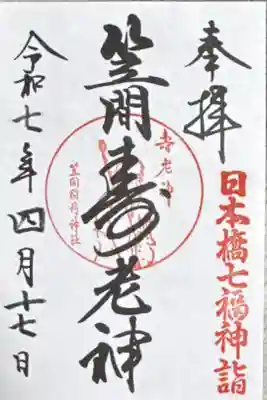 奉拝
日本橋七福神詣
笠間寿老神
寿老神
笠間稲荷神社
令和七年四月十七日